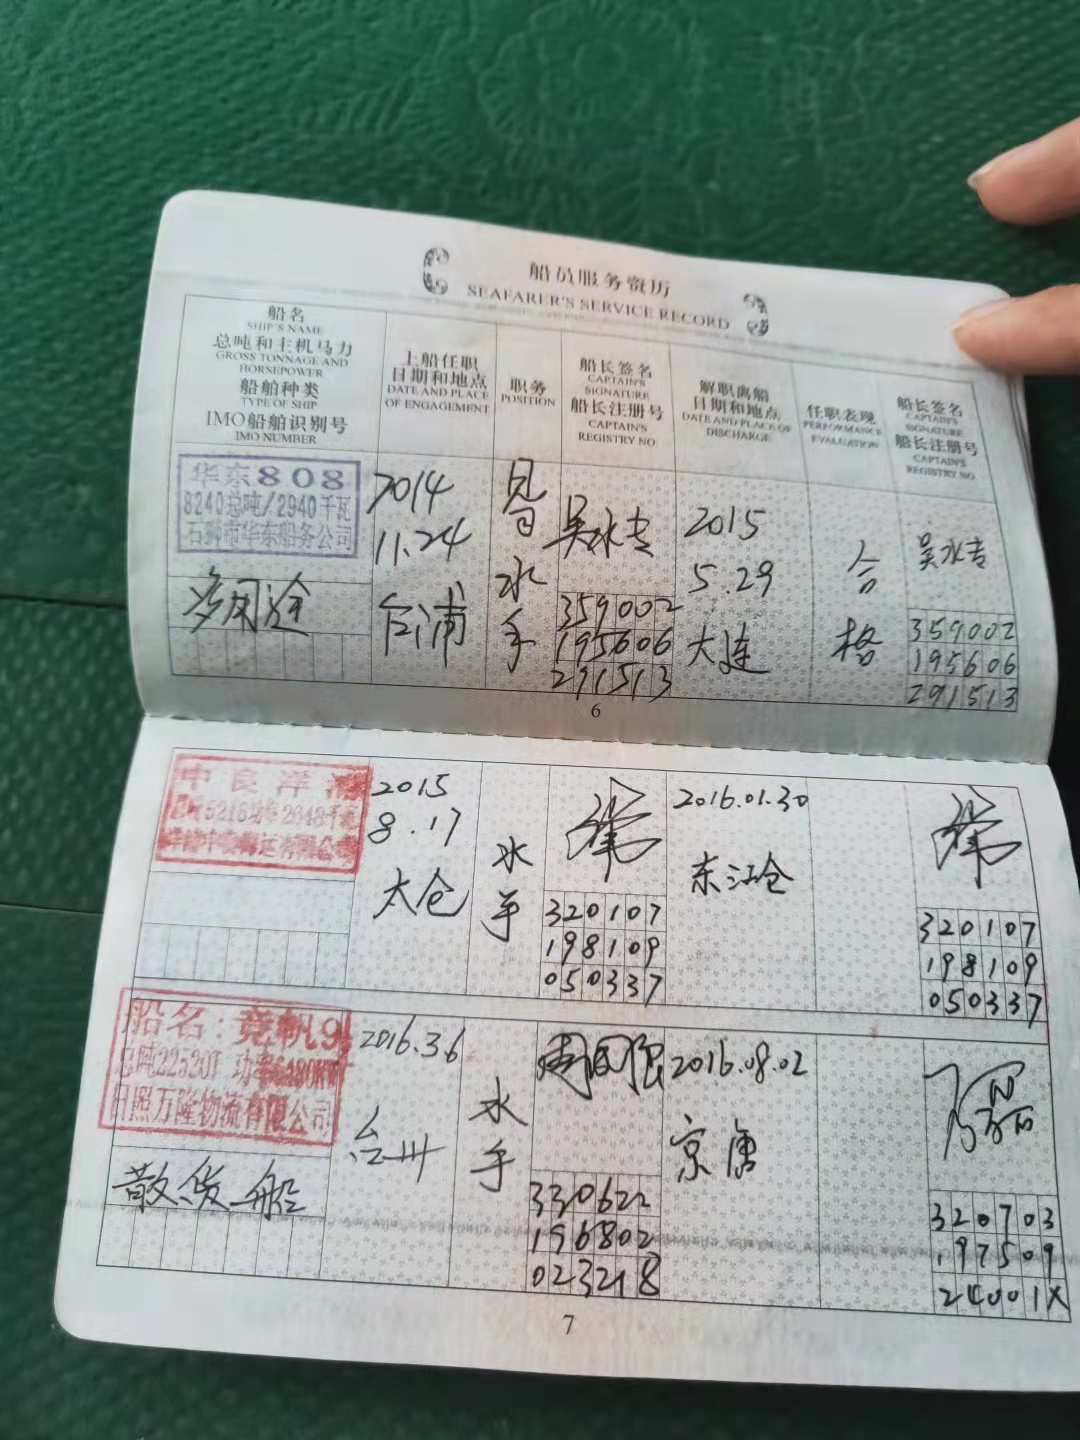 船员服务资历
SEAFARER'S SERVICE RECORD
船名
SHIP'S NAME
总吨和主机马力
GROSS TONNAGE AND
HORSEPOWER
船舶种类
TYPE OF SHIP
IMO船舶识别号
IMO NUMBER
上船任职
日期和地点
DATE AND PLACE
OF ENGAGEMENT
职务
POSITION
船长签名
CAPTAIN'S
SIGNATURE
船长注册号
CAPTAIN'S
REGISTRY NO
解职离船
日期和地点
DATE AND PLACE OF
DISCHARGE
任职表现
PERFORMANCE
EVALUATION
船长签名
CAPTAIN'S
SIGNATURE
船长注册号
CAPTAIN'S
REGISTRY NO
华东808
8240总吨/2940千瓦
石狮市华东船务公司
多用途
2014
11.24
水
手
359002
195606
291513
2015
5.29
大连
合
格
359002
195606
291513
6
2015
8.17
太仓
水
手
320107
198109
050337
2016.01.30
320107
198109
050337
船名:竞帆9
总吨22520T
日照万隆物流有限公司
散货船
2016.3.6
台州
水
手
周国强
330622
196802
023218
2016.08.02
京唐
320703
197509
24001X
7